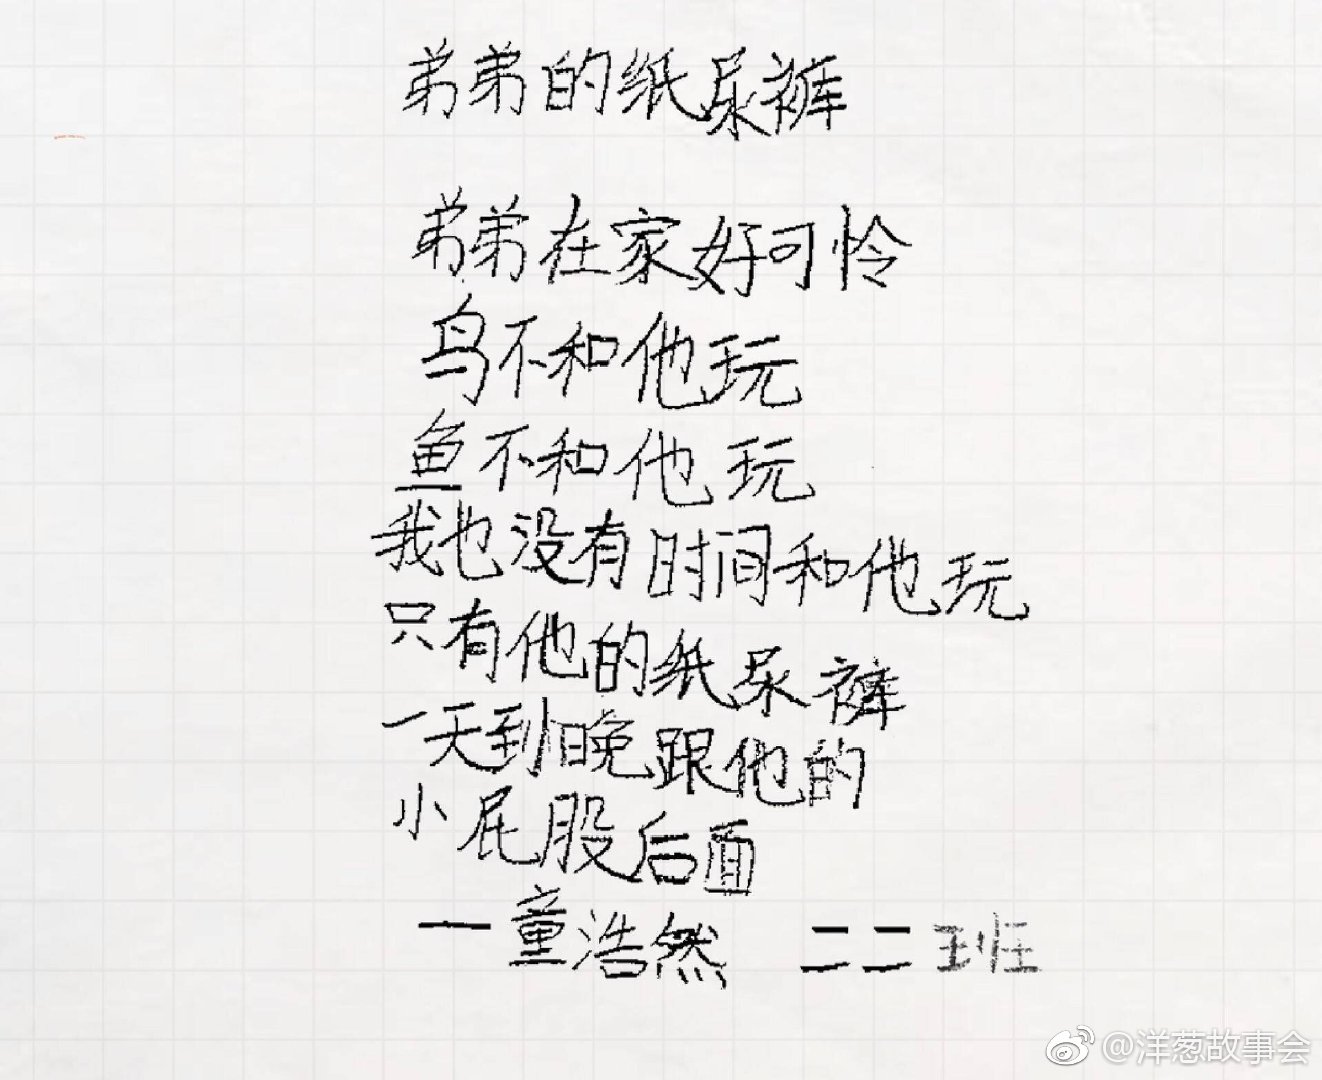 弟弟的纸尿裤
弟弟在家好可怜
鸟不和他玩
鱼不和他玩
我也没有时间和他玩
只有他的纸尿裤
一天到晚跟他的
小屁股后面
一童浩然 二二班
@洋葱故事会